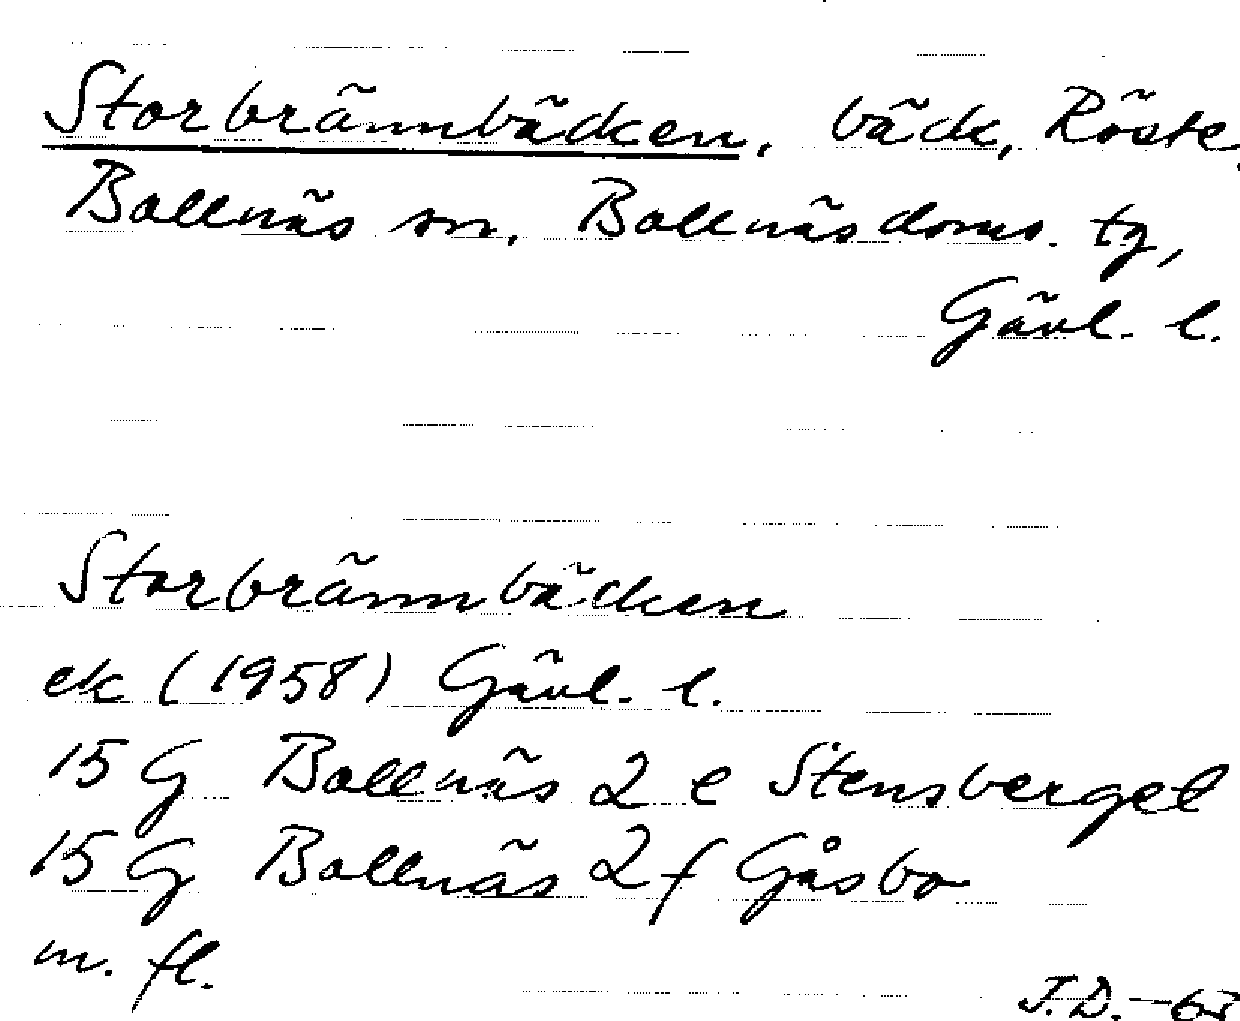 Storbrännbäcken, bäck, Röste,
Bollnäs sn, Bollnäs doms. tg,
Gävl. l.
Storbrännbäcken
ek (1958) Gävl. l.
15 G Bollnäs 2 e Stensberget
15 G Bollnäs 2 f Gåsbo
m. fl.
J.D. -63